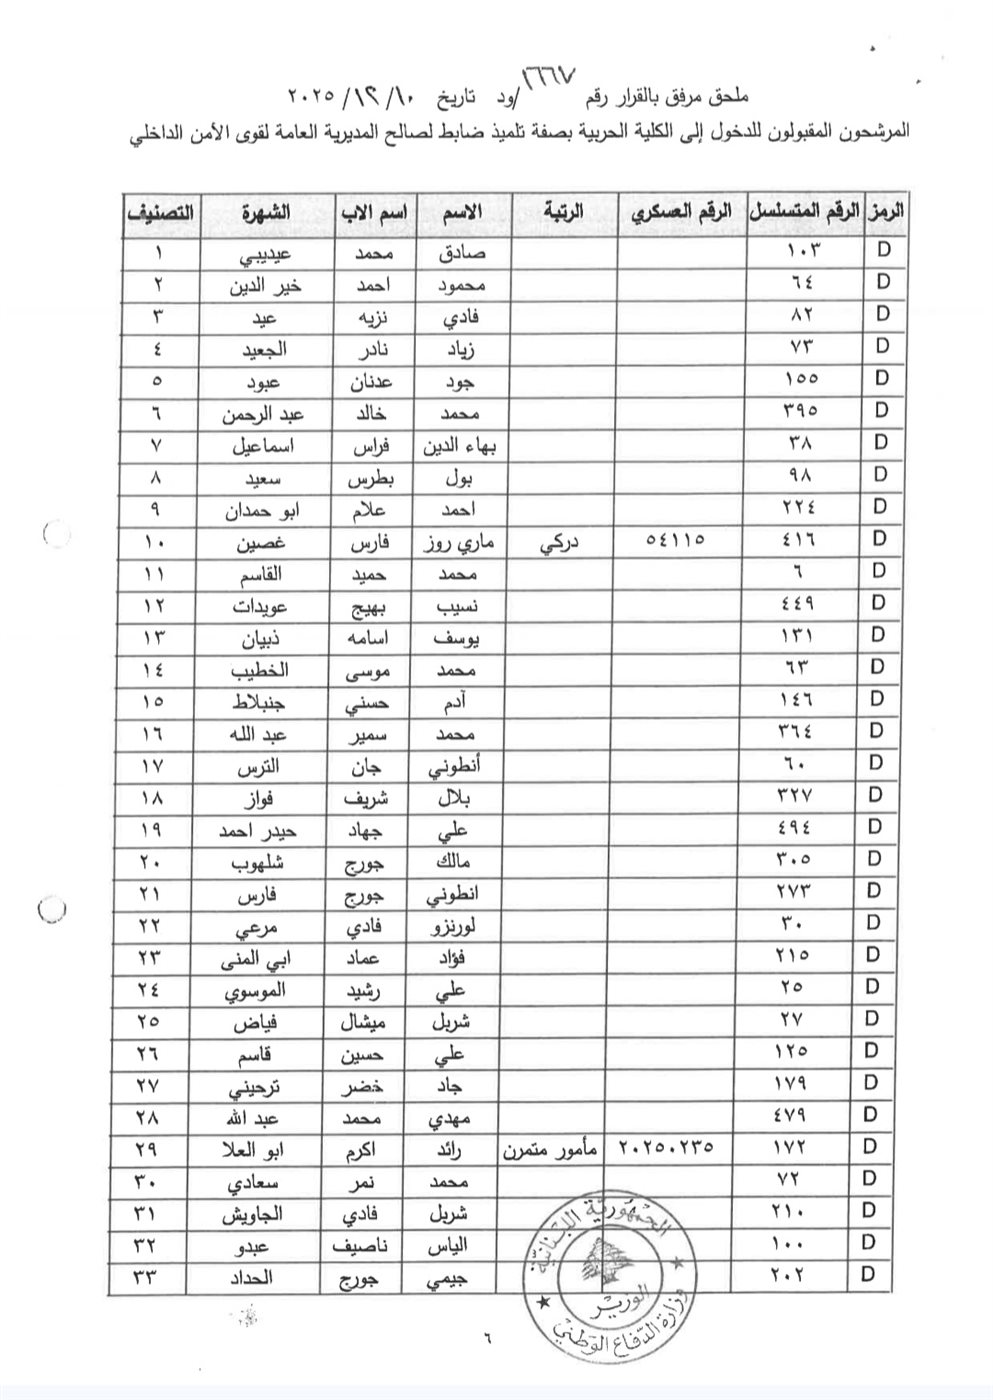 ملحق مرفق بالقرار رقم ١٦٦٧/ود تاريخ ٢٠٢٥/١٢/١٠
المرشحون المقبولون للدخول إلى الكلية الحربية بصفة تلميذ ضابط لصالح المديرية العامة لقوى الأمن الداخلي
الرمز الرقم المتسلسل الرقم العسكري الرتبة الاسم اسم الاب الشهرة التصنيف
D ١٠٣ صادق محمد عيديبي ١
D ٦٤ محمود احمد خير الدين ٢
D ٨٢ فادي نزيه عيد ٣
D ٧٣ زياد نادر الجعيد ٤
D ١٥٥ جود عدنان عبود ٥
D ٣٩٥ محمد خالد عبد الرحمن ٦
D ٣٨ بهاء الدين فراس اسماعيل ٧
D ٩٨ بول بطرس سعيد ٨
D ٢٢٤ احمد علام ابو حمدان ٩
D ٤١٦ ٥٤١١٥ دركي ماري روز فارس غصين ١٠
D ٦ محمد حميد القاسم ١١
D ٤٤٩ نسيب بهيج عويدات ١٢
D ١٣١ يوسف اسامه ذبيان ١٣
D ٦٣ محمد موسى الخطيب ١٤
D ١٤٦ آدم حسني جنبلاط ١٥
D ٣٦٤ محمد سمير عبد الله ١٦
D ٦٠ أنطوني جان الترس ١٧
D ٣٢٧ بلال شريف فواز ١٨
D ٤٩٤ علي جهاد حيدر احمد ١٩
D ٣٠٥ مالك جورج شلهوب ٢٠
D ٢٧٣ انطوني جورج فارس ٢١
D ٣٠ لورنزو فادي مرعي ٢٢
D ٢١٥ فؤاد عماد ابي المنى ٢٣
D ٢٥ علي رشيد الموسوي ٢٤
D ٢٧ شربل ميشال فياض ٢٥
D ١٢٥ علي حسين قاسم ٢٦
D ١٧٩ جاد خضر ترحيني ٢٧
D ٤٧٩ مهدي محمد عبد الله ٢٨
D ١٧٢ ٢٠٢٥٠٢٣٥ مأمور متمرن رائد اكرم ابو العلا ٢٩
D ٧٢ محمد نمر سعادي ٣٠
D ٢١٠ شربل فادي الجاويش ٣١
D ١٠٠ الياس ناصيف عبدو ٣٢
D ٢٠٢ جيمي جورج الحداد ٣٣
الجمهورية اللبنانية
الوزير
وزارة الدفاع الوطني
٦